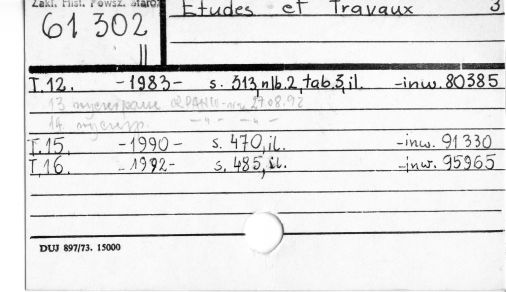 Zakł. Hist. Powsz. Staroż.
Etudes et Travaux 3
61 302
II
T.12. -1983- s. 313, nlb. 2, tab. 3, il. -inw. 80385
13
14
T.15. -1990- s. 470, il. -inw. 91330
T.16. -1992- s. 485, il. -inw. 95965
DUJ 897/73. 15000